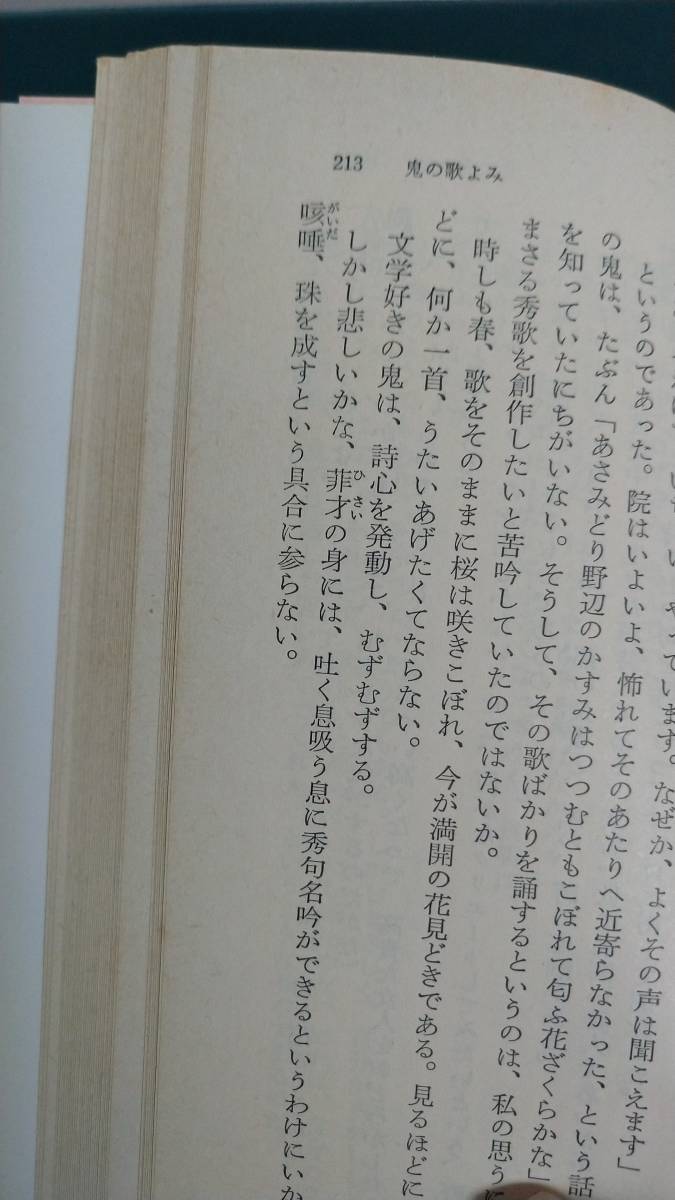 213 鬼の歌よみ
やっています。なぜか、よくその声は聞こえます」
というのであった。院はいよいよ、怖れてそのあたりへ近寄らなかった、という話
の鬼は、たぶん「あさみどり野辺のかすみはつつむともこぼれて匂ふ花ざくらかな」
を知っていたにちがいない。そうして、その歌ばかりを誦するというのは、私の思うに
まさる秀歌を創作したいと苦吟していたのではないか。
時しも春、歌をそのままに桜は咲きこぼれ、今が満開の花見どきである。見るほどに
どに、何か一首、うたいあげたくてならない。
文学好きの鬼は、詩心を発動し、むずむずする。
しかし悲しいかな、菲才の身には、吐く息吸う息に秀句名吟ができるというわけにいか
咳唾、珠を成すという具合に参らない。
ひさい
がいだ